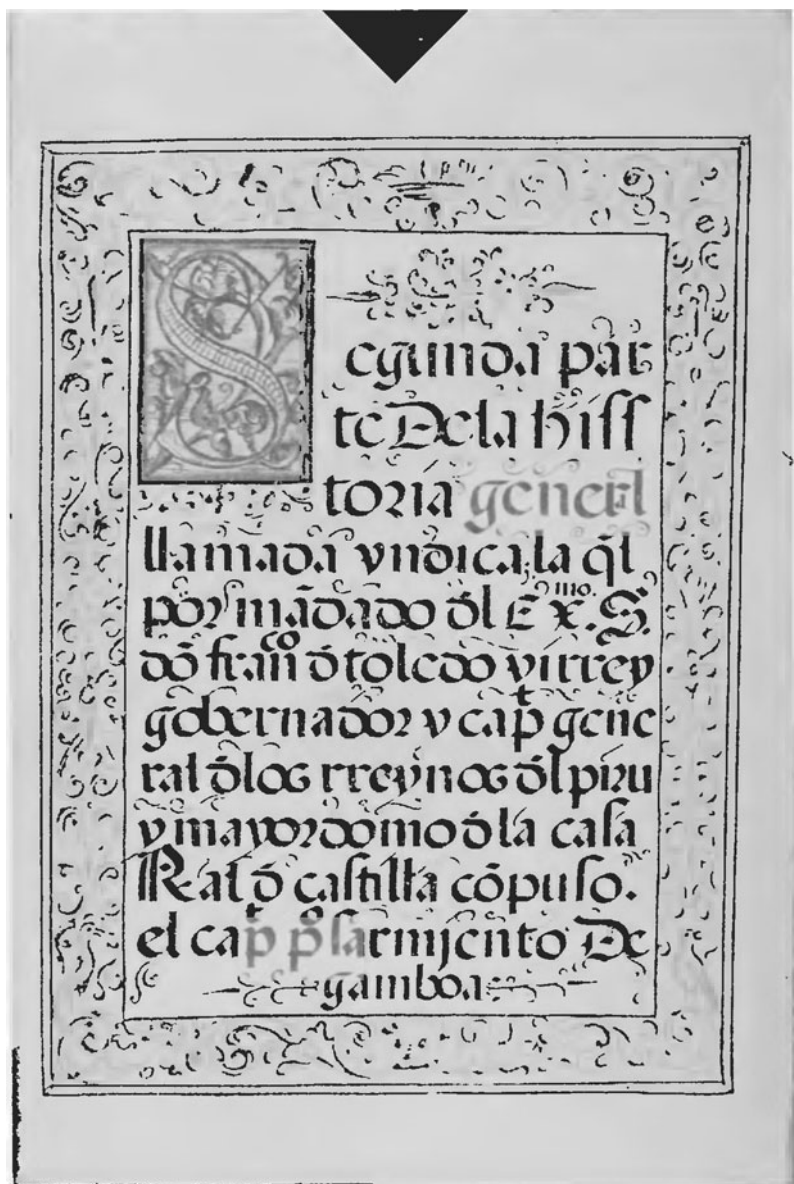 Segunda par
te De la hiss
toria generl
llamada yndica, la q̄l
por mādado d̄l Exmo. S.
dō franco d̄ toledo virrey
gobernador y capt gene
ral d̄ los rreynos d̄l piru
y mayordomo d̄ la casa
Rēal d̄ castilla cōpuso.
el capt pº sarmjento De
gamboa